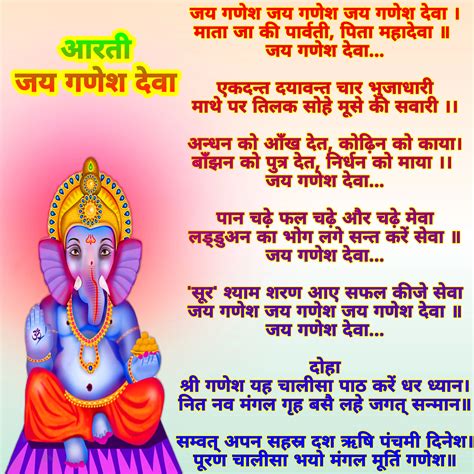 आरती
जय गणेश देवा
जय गणेश जय गणेश जय गणेश देवा ।
माता जा की पार्वती, पिता महादेवा ॥
जय गणेश देवा...
एकदन्त दयावन्त चार भुजाधारी
माथे पर तिलक सोहे मूसे की सवारी ।।
अन्धन को आँख देत, कोढ़िन को काया।
बाँझन को पुत्र देत, निर्धन को माया ।।
जय गणेश देवा...
पान चढ़े फल चढ़े और चढ़े मेवा
लड्डुअन का भोग लगे सन्त करें सेवा ॥
जय गणेश देवा...
'सूर' श्याम शरण आए सफल कीजे सेवा
जय गणेश जय गणेश जय गणेश देवा ॥
जय गणेश देवा...
दोहा
श्री गणेश यह चालीसा पाठ करें धर ध्यान।
नित नव मंगल गृह बसै लहे जगत् सन्मान॥
सम्वत् अपन सहस्र दश ऋषि पंचमी दिनेश।
पूरण चालीसा भयो मंगल मूर्ति गणेश॥
ॐ